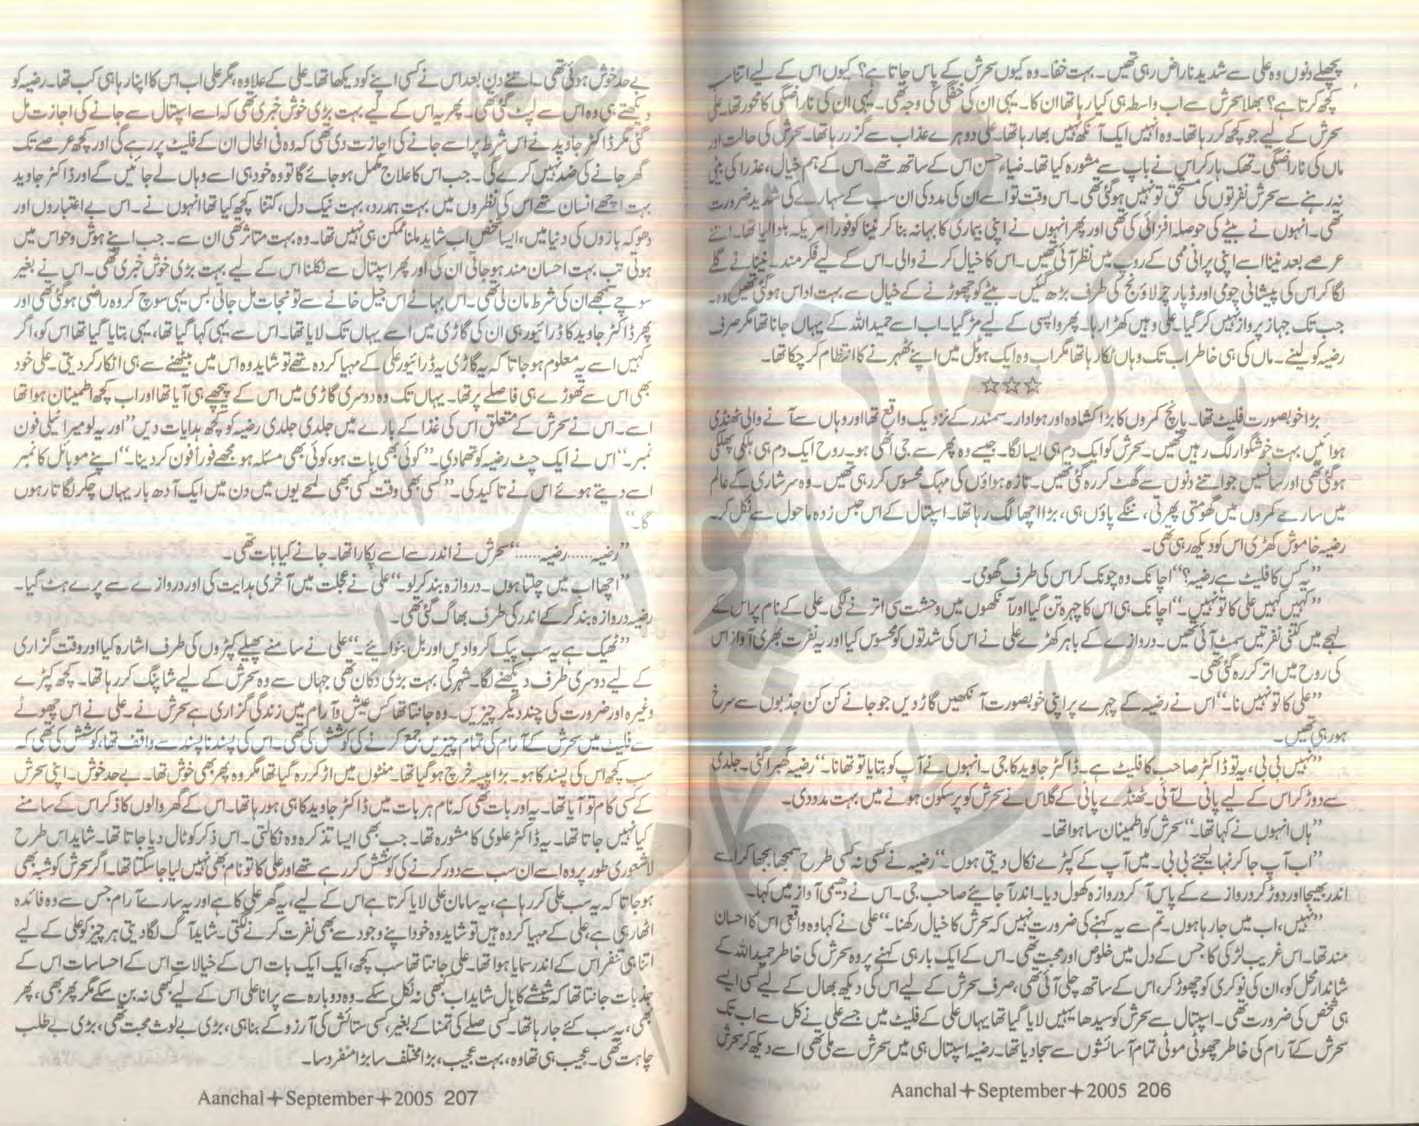 پچھلے دنوں وہ علی سے شدید ناراض رہی تھیں۔ بہت خفا۔ وہ کیوں سحرش کے پاس جاتا ہے؟ کیوں اس کے لیے اتنا سب
کچھ کرتا ہے؟ بھلا سحرش سے اب واسطہ ہی کیا رہا تھا ان کا۔ یہی ان کی خفگی کی وجہ تھی۔ یہی ان کی ناراضگی کا محور تھا۔ علی
سحرش کے لیے جو کچھ کر رہا تھا۔ وہ انہیں ایک آنکھ نہیں بھا رہا تھا۔ علی دوہرے عذاب سے گزر رہا تھا۔ سحرش کی حالت اور
ماں کی ناراضگی۔ تھک ہار کر اس نے باپ سے مشورہ کیا تھا۔ ضیاء حسن اس کے ساتھ تھے۔ اس کے ہم خیال، عذرا کی بیٹی
نہ رہنے سے سحرش نفرتوں کی مستحق تو نہیں ہوگئی تھی۔ اس وقت تو اسے ان کی مدد کی ان سب کے سہارے کی شدید ضرورت
تھی۔ انہوں نے بیٹے کی حوصلہ افزائی کی تھی اور پھر انہوں نے اپنی بیماری کا بہانہ بنا کر نینا کو فوراً امریکہ بلوا لیا تھا۔ اتنے
عرصے بعد نینا اسے اپنی پرانی ممی کے روپ میں نظر آئی تھیں۔ اس کا خیال کرنے والی۔ اس کے لیے فکر مند۔ نینا نے گلے
لگا کر اس کی پیشانی چومی اور ڈیپارچر لاؤنج کی طرف بڑھ گئیں۔ بیٹے کو چھوڑنے کے خیال سے بہت اداس ہوگئی تھیں وہ۔
جب تک جہاز پرواز نہیں کر گیا۔ علی وہیں کھڑا رہا۔ پھر واپسی کے لیے مڑ گیا۔ اب اسے حمید اللہ کے یہاں جانا تھا مگر صرف
رضیہ کو لینے۔ ماں کی ہی خاطر اب تک وہاں ٹکا رہا تھا مگر اب وہ ایک ہوٹل میں اپنے ٹھہرنے کا انتظام کر چکا تھا۔
☆☆☆
بڑا خوبصورت فلیٹ تھا۔ پانچ کمروں کا بڑا کشادہ اور ہوادار۔ سمندر کے نزدیک واقع تھا اور وہاں سے آنے والی ٹھنڈی
ہوائیں بہت خوشگوار لگ رہیں تھیں۔ سحرش کو ایک دم ہی ایسا لگا۔ جیسے وہ پھر سے جی اٹھی ہو۔ روح ایک دم ہی ہلکی پھلکی
ہوگئی تھی اور سانسیں جو اتنے دنوں سے گھٹ کر رہ گئی تھیں۔ تازہ ہواؤں کی مہک محسوس کر رہی تھیں۔ وہ سرشاری کے عالم
میں سارے کمروں میں گھومتی پھرتی، ننگے پاؤں ہی، بڑا اچھا لگ رہا تھا۔ اسپتال کے اس حبس زدہ ماحول سے نکل کر۔
رضیہ خاموش کھڑی اس کو دیکھ رہی تھی۔
”یہ کس کا فلیٹ ہے رضیہ؟“ اچانک وہ چونک کر اس کی طرف گھومی۔
”کہیں کہیں علی کا تو نہیں۔“ اچانک ہی اس کا چہرہ تن گیا اور آنکھوں میں وحشت سی اترنے لگی۔ علی کے نام پر اس کے
لہجے میں کتنی نفرتیں سمٹ آئی تھیں۔ دروازے کے باہر کھڑے علی نے اس کی شدتوں کو محسوس کیا اور یہ نفرت بھری آواز اس
کی روح میں اتر کر رہ گئی تھی۔
”علی کا تو نہیں نا۔“ اس نے رضیہ کے چہرے پر اپنی خوبصورت آنکھیں گاڑ دیں جو جانے کن کن جذبوں سے سرخ
ہو رہی تھیں۔
”نہیں بی بی، یہ تو ڈاکٹر صاحب کا فلیٹ ہے۔ ڈاکٹر جاوید کا جی۔ انہوں نے آپ کو بتایا تو تھا نا۔“ رضیہ گھبرا گئی۔ جلدی
سے دوڑ کر اس کے لیے پانی لے آئی۔ ٹھنڈے پانی کے گلاس نے سحرش کو پرسکون ہونے میں بہت مدد دی۔
”ہاں انہوں نے کہا تھا۔“ سحرش کو اطمینان سا ہوا تھا۔
”اب آپ جا کر نہا لیجئے بی بی۔ میں آپ کے کپڑے نکال دیتی ہوں۔“ رضیہ نے کسی نہ کسی طرح سمجھا بجھا کر اسے
اندر بھیجا اور دوڑ کر دروازے کے پاس آ کر دروازہ کھول دیا۔ اندر آ جائیے صاحب جی۔ اس نے دھیمی آواز میں کہا۔
”نہیں، اب میں جا رہا ہوں۔ تم سے یہ کہنے کی ضرورت نہیں کہ سحرش کا خیال رکھنا۔“ علی نے کہا وہ واقعی اس کا احسان
مند تھا۔ اس غریب لڑکی کا جس کے دل میں خلوص اور محبت تھی۔ اس کے ایک بار ہی کہنے پر وہ سحرش کی خاطر حمید اللہ کے
شاندار محل کو، ان کی نوکری کو چھوڑ کر، اس کے ساتھ چلی آئی تھی، صرف سحرش کے لیے اس کی دیکھ بھال کے لیے کسی ایسے
ہی شخص کی ضرورت تھی۔ اسپتال سے سحرش کو سیدھا یہیں لایا گیا تھا یہاں علی کے فلیٹ میں جسے علی نے کل سے اب تک
سحرش کے آرام کی خاطر چھوٹی موٹی تمام آسائشوں سے سجا دیا تھا۔ رضیہ اسپتال ہی میں سحرش سے ملی تھی اسے دیکھ کر سحرش
Aanchal+September+2005 206
بے حد خوش ہوئی تھی۔ اتنے دن بعد اس نے کسی اپنے کو دیکھا تھا۔ علی کے علاوہ، مگر علی اب اس کا اپنا رہا ہی کب تھا۔ رضیہ کو
دیکھتے ہی وہ اس سے لپٹ گئی تھی۔ پھر یہ اس کے لیے بہت بڑی خوش خبری تھی کہ اسے اسپتال سے جانے کی اجازت مل
گئی مگر ڈاکٹر جاوید نے اس شرط پر اسے جانے کی اجازت دی تھی کہ وہ فی الحال ان کے فلیٹ پر رہے گی اور کچھ عرصے تک
گھر جانے کی ضد نہیں کرے گی۔ جب اس کا علاج مکمل ہو جائے گا تو وہ خود ہی اسے وہاں لے جائیں گے اور ڈاکٹر جاوید
بہت اچھے انسان تھے اس کی نظروں میں بہت ہمدرد، بہت نیک دل، کتنا کچھ کیا تھا انہوں نے۔ اس بے اعتباروں اور
دھوکہ بازوں کی دنیا میں، ایسا شخص اب شاید ملنا ممکن ہی نہیں تھا۔ وہ بہت متاثر تھی ان سے۔ جب اپنے ہوش و حواس میں
ہوتی تب بہت احسان مند ہو جاتی ان کی اور پھر اسپتال سے نکلنا اس کے لیے بہت بڑی خوش خبری تھی۔ اس نے بغیر
سوچے سمجھے ان کی شرط مان لی تھی۔ اس بہانے اس جیل خانے سے تو نجات مل جاتی بس یہی سوچ کر وہ راضی ہوگئی تھی اور
پھر ڈاکٹر جاوید کا ڈرائیور ہی ان کی گاڑی میں اسے یہاں تک لایا تھا۔ اس سے یہی کہا گیا تھا، یہی بتایا گیا تھا اس کو، اگر
کہیں اسے یہ معلوم ہو جاتا کہ یہ گاڑی یہ ڈرائیور علی کے مہیا کردہ تھے تو شاید وہ اس میں بیٹھنے سے ہی انکار کر دیتی۔ علی خود
بھی اس سے تھوڑے ہی فاصلے پر تھا۔ یہاں تک وہ دوسری گاڑی میں اس کے پیچھے ہی آیا تھا اور اب کچھ اطمینان ہوا تھا
اسے۔ اس نے سحرش کے متعلق اس کی غذا کے بارے میں جلدی جلدی رضیہ کو کچھ ہدایات دیں ”اور یہ لو میرا ٹیلی فون
نمبر۔“ اس نے ایک چٹ رضیہ کو تھما دی۔ ”کوئی بھی بات ہو، کوئی بھی مسئلہ ہو مجھے فوراً فون کر دینا۔“ اپنے موبائل کا نمبر
اسے دیتے ہوئے اس نے تاکید کی۔ ”کسی بھی وقت کسی بھی لمحے یوں میں دن میں ایک آدھ بار یہاں چکر لگاتا رہوں
گا۔“
”رضیہ...... رضیہ......“ سحرش نے اندر سے اسے پکارا تھا۔ جانے کیا بات تھی۔
”اچھا اب میں چلتا ہوں۔ دروازہ بند کر لو۔“ علی نے عجلت میں آخری ہدایت کی اور دروازے سے پرے ہٹ گیا۔
رضیہ دروازہ بند کر کے اندر کی طرف بھاگ گئی تھی۔
”ٹھیک ہے یہ سب پیک کروا دیں اور بل بنوائیے۔“ علی نے سامنے پھیلے کپڑوں کی طرف اشارہ کیا اور وقت گزاری
کے لیے دوسری طرف دیکھنے لگا۔ شہر کی بہت بڑی دکان تھی جہاں سے وہ سحرش کے لیے شاپنگ کر رہا تھا۔ کچھ کپڑے
وغیرہ اور ضرورت کی چند دیگر چیزیں۔ وہ جانتا تھا کس عیش و آرام میں زندگی گزاری ہے سحرش نے۔ علی نے اس چھوٹے
سے فلیٹ میں سحرش کے آرام کی تمام چیزیں جمع کرنے کی کوشش کی تھی۔ اس کی پسند ناپسند سے واقف تھا، کوشش کی تھی کہ
سب کچھ اس کی پسند کا ہو۔ بڑا پیسہ خرچ ہو گیا تھا۔ منٹوں میں اڑ کر رہ گیا تھا مگر وہ پھر بھی خوش تھا۔ بے حد خوش۔ اپنی سحرش
کے کسی کام تو آیا تھا۔ یہ اور بات تھی کہ نام ہر بات میں ڈاکٹر جاوید کا ہی ہو رہا تھا۔ اس کے گھر والوں کا ذکر اس کے سامنے
کیا نہیں جاتا تھا۔ یہ ڈاکٹر علوی کا مشورہ تھا۔ جب بھی ایسا تذکرہ وہ نکالتی۔ اس ذکر کو ٹال دیا جاتا تھا۔ شاید اس طرح
لاشعوری طور پر وہ اسے ان سب سے دور کرنے کی کوشش کر رہے تھے اور علی کا تو نام بھی نہیں لیا جا سکتا تھا۔ اگر سحرش کو شبہ بھی
ہو جاتا کہ یہ سب علی کر رہا ہے، یہ سامان علی لایا کرتا ہے اس کے لیے، یہ گھر علی کا ہے اور یہ سارے آرام جس سے وہ فائدہ
اٹھا رہی ہے، علی کے مہیا کردہ ہیں تو شاید وہ خود اپنے وجود سے بھی نفرت کرنے لگتی۔ شاید آگ لگا دیتی ہر چیز کو علی کے لیے
اتنا ہی تنفر اس کے اندر سمایا ہوا تھا۔ علی جانتا تھا سب کچھ، ایک ایک بات اس کے خیالات اس کے احساسات اس کے
جذبات جانتا تھا کہ شیشے کا بال شاید اب بھی نہ نکل سکے۔ وہ دوبارہ سے پرانا علی اس کے لیے بھی نہ بن سکے مگر پھر بھی، پھر
بھی، یہ سب کئے جا رہا تھا۔ کسی صلے کی تمنا کے بغیر، کسی ستائش کی آرزو کے بنا ہی، بڑی بے لوث محبت تھی، بڑی بے طلب
چاہت تھی۔ عجیب ہی تھا وہ، بہت عجیب، بڑا مختلف سا بڑا منفرد سا۔
Aanchal+September+2005 207